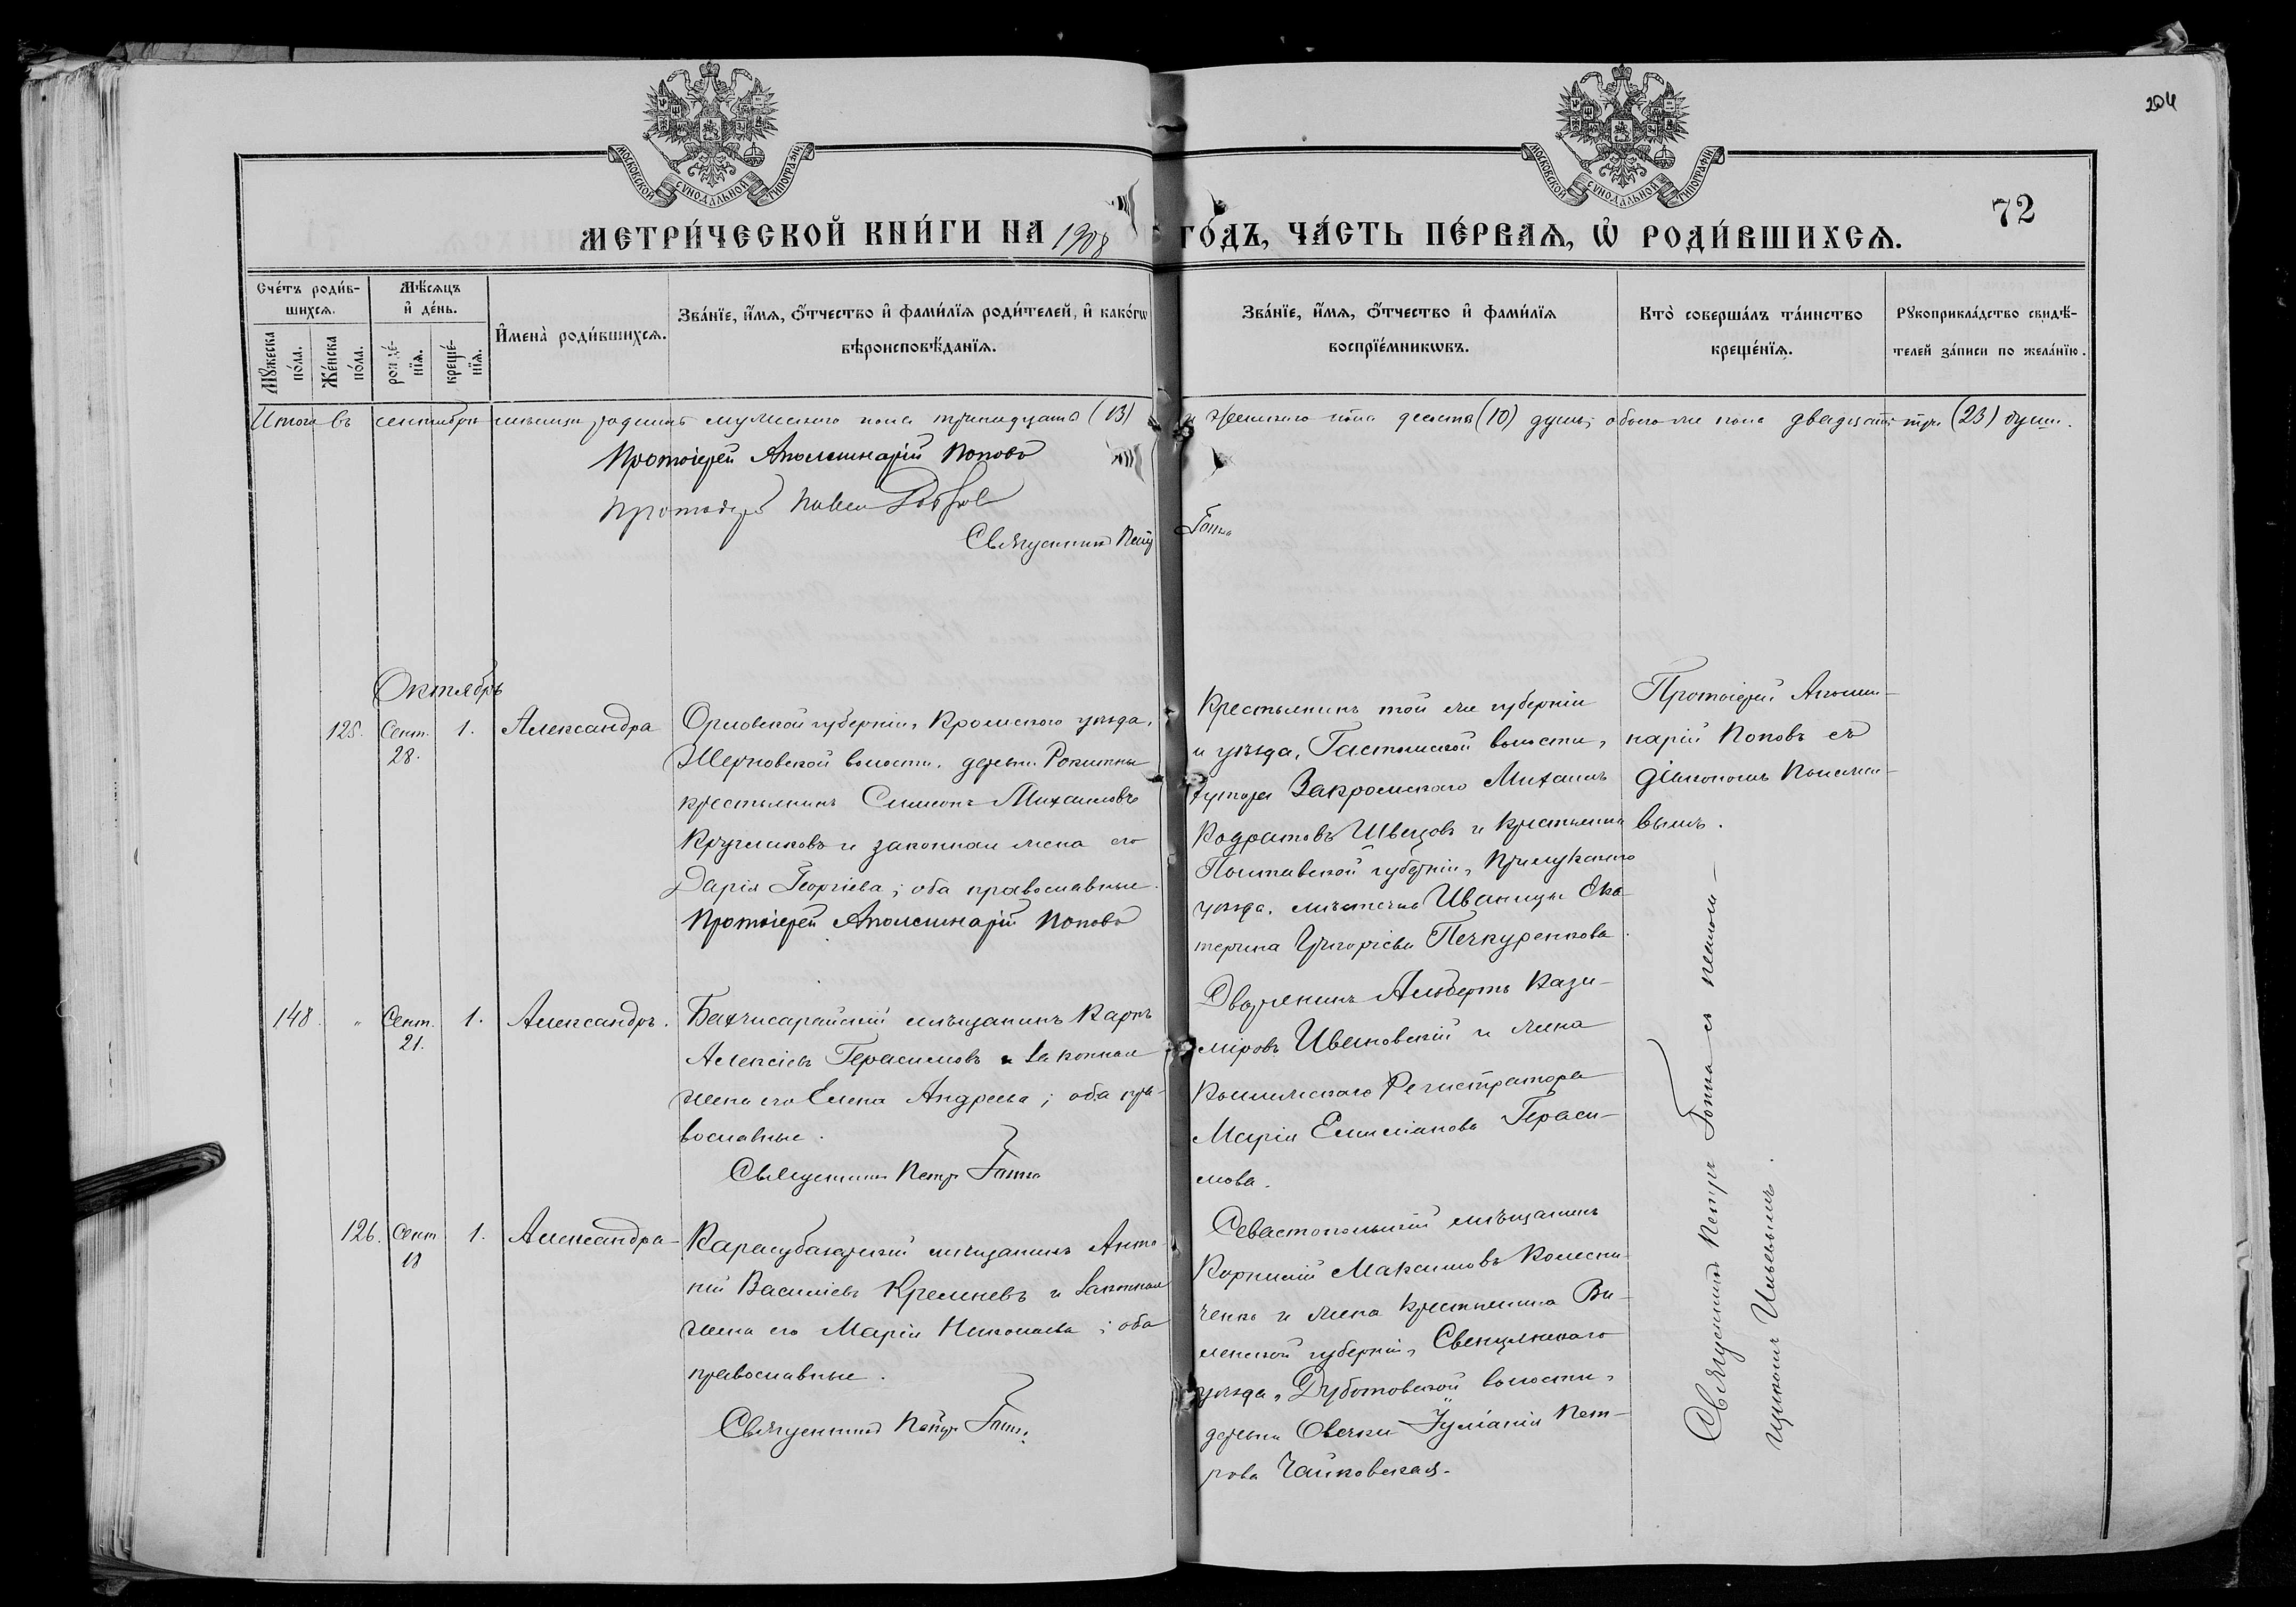 204
72
МОСКОВСКОЙ СѴНОДАЛЬНОЙ ТИПОГРАФІИ
МОСКОВСКОЙ СѴНОДАЛЬНОЙ ТИПОГРАФІИ
МЕТРИ́ЧЕСКОЙ КНИ́ГИ НА 1908 ГО́ДЪ, ЧА́СТЬ ПЕ́РВАѦ, Ѡ҆ РОДИ́ВШИХСѦ.
Сче́тъ роди́в-
шихсѧ.
Мꙋ́жеска
по́ла.
Же́нска
по́ла.
Мѣ́сѧцъ
и҆ де́нь.
рожде́-
нїѧ.
креще́-
нїѧ.
И҆мена̀ роди́вшихсѧ.
Зва́нїе, и҆́мѧ, ѻ҆́тчество и҆ фами́лїѧ роди́телей, и҆ како́гѡ
вѣроисповѣ́данїѧ.
Зва́нїе, и҆́мѧ, ѻ҆́тчество и҆ фами́лїѧ
воспрїе́мникѡвъ.
Кто̀ соверша́лъ та́инство
креще́нїѧ.
Рꙋкоприкла́дство свидѣ́-
телей за́писи по жела́нїю.
Итого въ сентябрѣ мѣсяцѣ родилось мужескаго пола тринадцать (13) и женскаго пола десять (10) душъ, обоего же пола двадцать три (23) души.
Протоіерей Аполлинарій Поповъ
Протоіерей Павелъ
Священникъ Петръ
Октябрь
125. Сент. 28. 1. Александра
Орловской губерніи, Кромскаго уѣзда,
Жерновской волости, деревни Рокитни
крестьянинъ Симеонъ Михаиловъ
Кругликовъ и законная жена его
Дарія Георгіева; оба православные.
Протоіерей Аполлинарій Поповъ
Крестьянинъ той же губерніи
и уѣзда, Гастомской волости,
хутора Закромскаго Михаилъ
Кодратовъ Швецовъ и крестьянка
Полтавской губерніи, Прилукскаго
уѣзда, мѣстечка Иваницы Ека-
терина Григорьева Печкуренкова.
Протоіерей Аполли-
нарій Поповъ съ
діакономъ
вымъ.
148. " Сент. 21. 1. Александръ.
Бахчисарайскій мѣщанинъ Карпъ
Алексіевъ Герасимовъ и законная
жена его Елена Андреева; оба пра-
вославные.
Священникъ Петръ
Дворянинъ Альбертъ Кази-
міровъ Ивановскій и жена
Коллежскаго Регистратора
Марія Емиліанова Гераси-
мова.
126. Сент 18 1. Александра
Карасубазарскій мѣщанинъ Анто-
ній Василіевъ Кремневъ и законная
жена его Марія Николаева; оба
православные.
Священникъ Петръ
Севастопольскій мѣщанинъ
Корнилій Максимовъ Колесни-
ченко и жена крестьянина Ви-
ленской губерніи, Свенцянскаго
уѣзда, Дуботовской волости,
деревни Овечки Іуліанія Пет-
рова Чайковская.
Священникъ Петръ съ псалом-
щикомъ Ильинымъ.